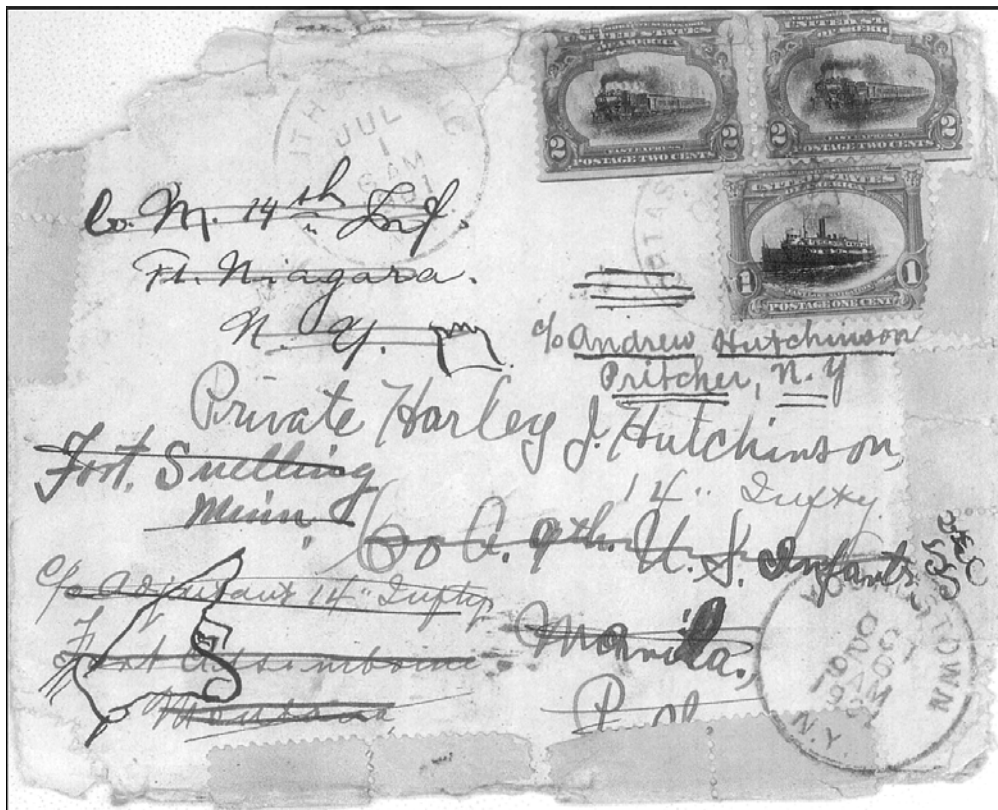 UNITED STATES
OF AMERICA
2 2
FAST EXPRESS
POSTAGE TWO CENTS
UNITED STATES
OF AMERICA
2 2
FAST EXPRESS
POSTAGE TWO CENTS
UNITED STATES
OF AMERICA
1 1
POSTAGE ONE CENT
JUL
1
6 AM
Co. M. 14th Inf.
Ft. Niagara.
N. Y.
c/o Andrew Hutchinson
Pritcher, N. Y
Private Harley J. Hutchinson,
14" Infty.
Fort. Snelling
Minn.
Co A. 9th. U. S. Infantry
c/o Adjutant 14" Infty
Fort Assinniboine
Montana
Manila,
YOUNGSTOWN
N.Y.
AM